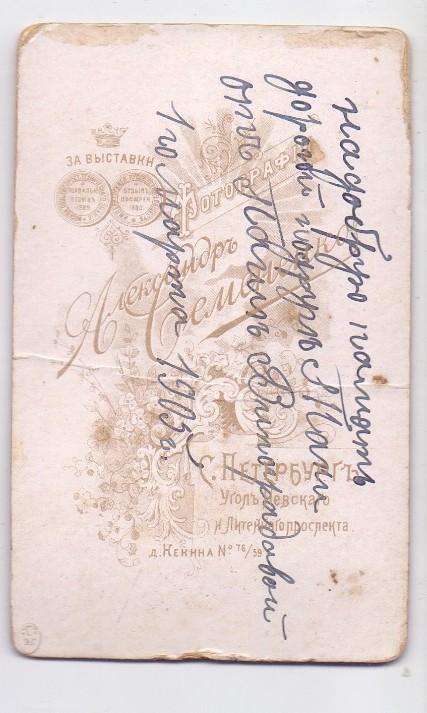 ЗА ВЫСТАВКИ
ФОТОГРАФІЯ
Александръ
С. ПЕТЕРБУРГЪ.
Уголъ Невскаго
и Литейнаго проспекта.
д. Кекина № 76/59
на добрую память
дорогой подругѣ
отъ Виноградовой
1го Марта 1905 г.